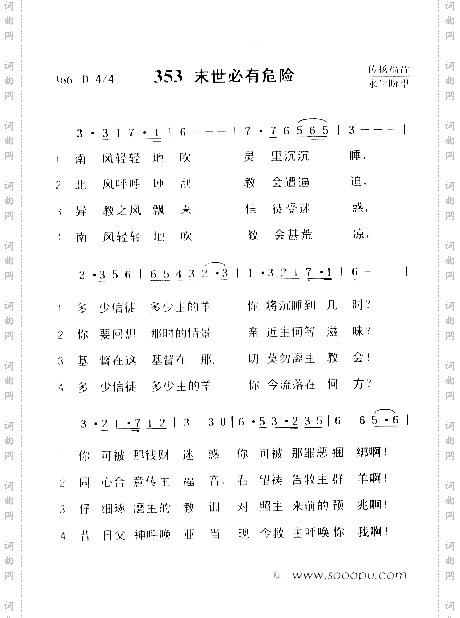 353 末世必有危险
D 4/4
3·3 1 7·1 | 6 - - - | 7·7 6 5 6 5 | 3 - - - |
1 南 风轻轻 地 吹 灵 里沉沉 睡,
2 北 风呼呼 刮 教 会遭逼 迫,
3 异 教之风 飘 来 信 徒受迷 惑,
南 风轻轻 地 吹 教 会甚荒 凉,
2·3 5 6 | 6 5 4 3 2·3 | 1·3 2 1 7·1 | 6 - - |
1 多 少信徒 多少主的羊 你 将沉睡到 几 时?
2 你 要回想 那时的情景 亲 近主何等 滋 味?
3 基 督在这 基督在 那, 切 莫勿离主 教 会!
4 多 少信徒 多少主的羊 你 今流落在 何 方?
3·2 1·7 1 2 | 3 3 0 | 6·5 3·2 3 5 | 6 6 5·6 |
你 可被 那钱财 迷 惑 你 可被 那罪恶捆 绑啊!
2 同 心合 意传主 福 音, 主群 羊啊!
3 仔 细琢 主的 教 训 对 照主 来前的预 兆啊!
4 昔 日父 神呼唤 亚 当 现 今救 主呼唤你 我啊!
www.sooopu.com
词曲网